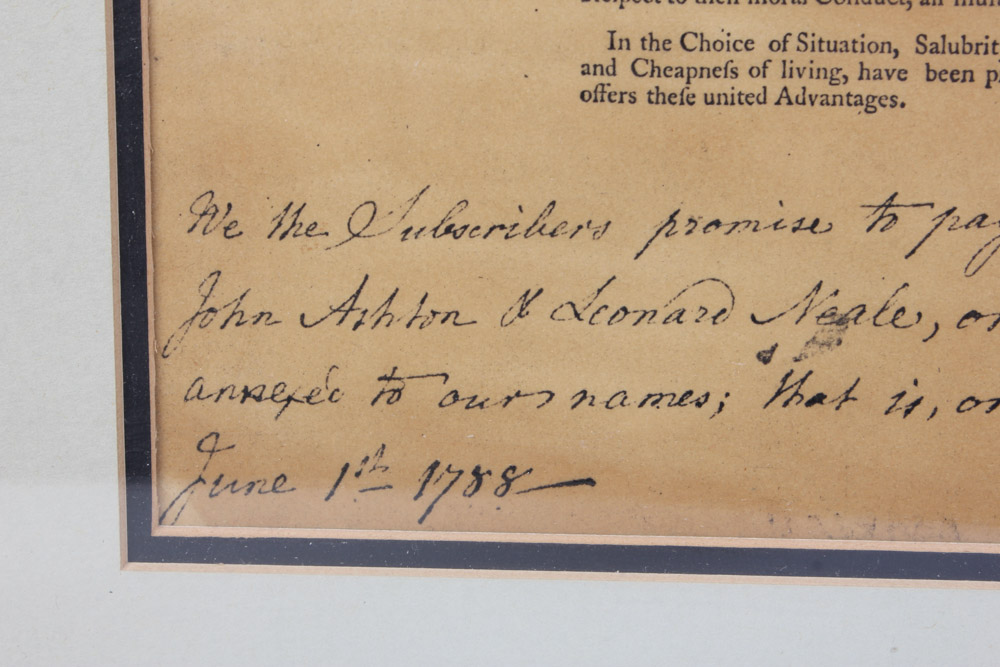 Respect to their moral Conduct, an
In the Choice of Situation, Salubrit
and Cheapneſs of living, have been p
offers theſe united Advantages.
We the Subscribers promise to pay
John Ashton & Leonard Neale, or
annexed to our names; that is, on
June 1st 1788—